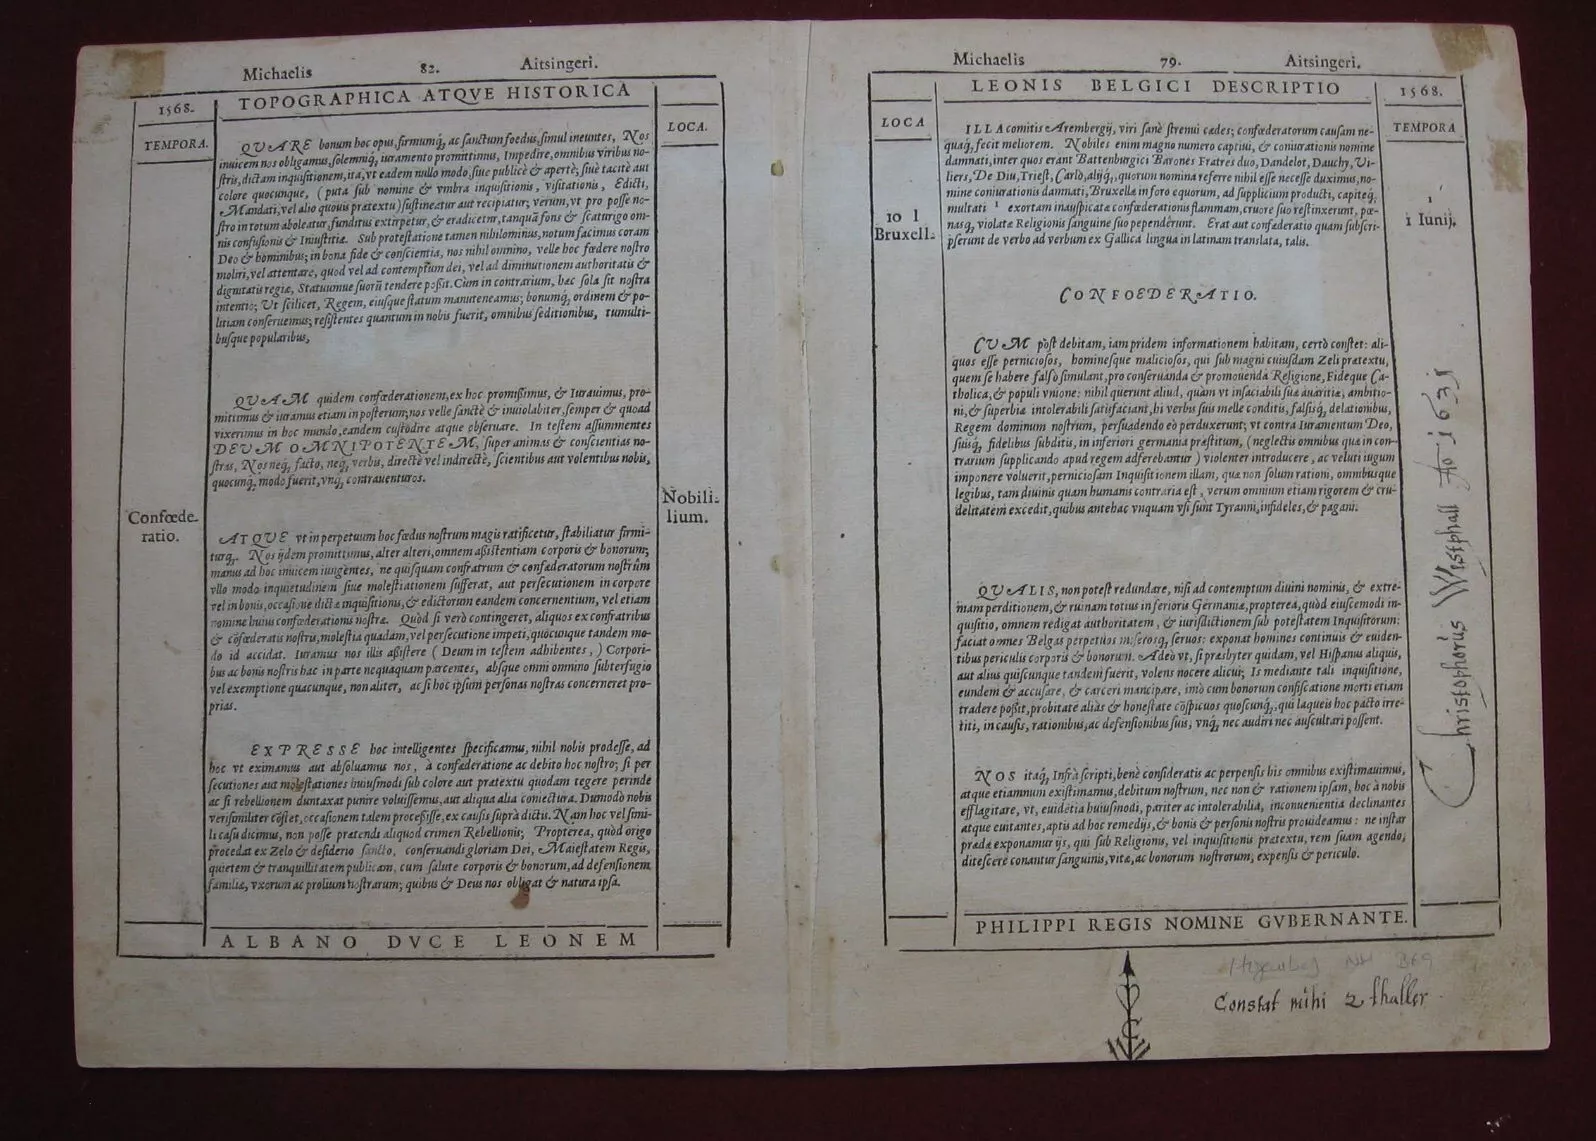 Michaelis 82. Aitsingeri.
1568. TOPOGRAPHICA ATQVE HISTORICA
TEMPORA. LOCA.
QVARE bonum hoc opus, firmumq́, ac sanctum foedus, simul ineuntes, Nos
inuicem nos obligamus, solemniq́, iuramento promittimus, Impedire, omnibus viribus no-
stris, dictam inquisitionem, ita, vt eadem nullo modo, siue publicè & apertè, siuè tacitè aut
colore quocunque, (puta sub nomine & vmbra inquisitionis, visitationis, Edicti,
Mandati, vel alio quouis pratextu) sustineatur aut recipiatur; verum, vt pro posse no-
stro in totum aboleatur, funditus extirpetur, & eradicetur, tanquã fons & scaturigo om-
nis confusionis & Iniustitiæ. Sub protestatione tamen nihilominus, notum facimus coram
Deo & hominibus; in bona fide & conscientia, nos nihil omnino, velle hoc fœdere nostro
moliri, vel attentare, quod vel ad contemptum dei, vel ad diminutionem authoritatis &
dignitatis regiæ, Statuumue suorũ tendere possit. Cùm in contrarium, hæc sola sit nostra
intentio; Vt scilicet, Regem, eiusque statum manuteneamus; bonumq́, ordinem & po-
litiam conseruemus; resistentes quantum in nobis fuerit, omnibus seditionibus, tumulti-
busque popularibus,
QVAM quidem confœderationem, ex hoc promisimus, & Iurauimus, pro-
mittimus & iuramus etiam in posterum; nos velle sanctè & inuiolabiter, semper & quoad
vixerimus in hoc mundo, eandem custodire atque obseruare. In testem assummentes
DEVM OMNIPOTENTEM, super animas & conscientias no-
stras, Nos neq́, facto, neq́, verbis, directè vel indirectè, scientibus aut volentibus nobis,
quocunq́, modo fuerit, vnq́, contrauenturos.
Confœde-
ratio.
Nobili-
lium.
ATQVE vt in perpetuum hoc fœdus nostrum magis ratificetur, stabiliatur firmi-
turq́,. Nos ijdem promittimus, alter alteri, omnem assistentiam corporis & bonorum;
manus ad hoc inuicem iungẽtes, ne quisquam confratrum & confœderatorum nostrûm
vllo modo inquietudinem siue molestiationem sufferat, aut persecutionem in corpore
vel in bonis, occasione dictæ inquisitionis, & edictorum eandem concernentium, vel etiam
nomine huius confœderationis nostræ. Quòd si verò contingeret, aliquos ex confratribus
& cõfœderatis nostris, molestia quadam, vel persecutione impeti, quocunque tandem mo-
do id accidat. Iuramus nos illis assistere (Deum in testem adhibentes,) Corpori-
bus ac bonis nostris hac in parte nequaquam parcentes, absque omni omnino subterfugio
vel exemptione quacunque, non aliter, ac si hoc ipsum personas nostras concerneret pro-
prias.
EXPRESSE hoc intelligentes specificamus, nihil nobis prodesse, ad
hoc vt eximamus aut absoluamus nos, à confœderatione ac debito hoc nostro; si per
secutiones aut molestationes huiusmodi sub colore aut pratextu quodam tegere perinde
ac si rebellionem duntaxat punire voluissemus, aut aliqua alia coniectura. Dumodò nobis
verisimiliter cõstet, occasionem talem processisse, ex causis suprà dictis. Nam hoc vel simi-
li casu dicimus, non posse pratendi aliquod crimen Rebellionis; Propterea, quòd origo
procedat ex Zelo & desiderio sancto, conseruandi gloriam Dei, Maiestatem Regis,
quietem & tranquillitatem publicam, cum salute corporis & bonorum, ad defensionem
familiæ, vxorum ac prolium nostrarum; quibus & Deus nos obligat & natura ipsa.
ALBANO DVCE LEONEM
Michaelis 79. Aitsingeri.
LEONIS BELGICI DESCRIPTIO 1568.
LOCA TEMPORA
ILLA comitis Arembergij, viri sanè strenui cædes; confœderatorum causam ne-
quaq́, fecit meliorem. Nobiles enim magno numero captiui, & coniurationis nomine
damnati, inter quos erant Battenburgici Barones Fratres duo, Dandelot, Dauchy, Vi-
liers, De Diu, Triest, Carlò, alijq́,, quorum nomina referre nihil esse necesse duximus, no-
mine coniurationis damnati, Bruxella in foro equorum, ad supplicium producti, capiteq́,
multati 1 exortam inauspicata confœderationis flammam, cruore suo restinxerunt, pœ-
nasq́, violatæ Religionis sanguine suo pependêrunt. Erat aut confœderatio quam subscri-
pserunt de verbo ad verbum ex Gallica lingua in latinam translata, talis.
10 1
Bruxell.
1
1 Iunij.
CONFOEDERATIO.
CVM pòst debitam, iam pridem informationem habitam, certò constet: ali-
quos esse perniciosos, hominesque maliciosos, qui sub magni cuiusdam Zeli pratextu,
quem se habere falsò simulant, pro conseruanda & promouenda Religione, Fideque Ca-
tholica, & populi vnione: nihil querunt aliud, quàm vt insaciabili suæ auaritiæ, ambitio-
ni, & superbiæ intolerabili satisfaciant, hi verbis suis melle conditis, falsisq́, delationibus,
Regem dominum nostrum, persuadendo eò perduxerunt; vt contra Iuramentum Deo,
suisq́, fidelibus subditis, in inferiori germania præstitum, (neglectis omnibus quæ in con-
trarium supplicando apud regem adferebantur) violenter introducere, ac veluti iugum
imponere voluerit, perniciosam Inquisitionem illam, quæ non solum rationi, omnibusque
legibus, tam diuinis quam humanis contraria est, verum omnium etiam rigorem & cru-
delitatem excedit, quibus antehac vnquam vsi sunt Tyranni, infideles, & pagani.
QVALIS, non potest redundare, nisi ad contemptum diuini nominis, & extre-
mam perditionem, & ruinam totius inferioris Germaniæ, propterea, quòd eiuscemodi in-
quisitio, omnem redigat authoritatem, & iurisdictionem sub potestatem Inquisitorum:
faciat omnes Belgas perpetuos miserosq́, seruos: exponat homines continuis & euiden-
tibus periculis corporis & bonorum. Adeò vt, si presbyter quidam, vel Hispanus aliquis,
aut alius quiscunque tandem fuerit, volens nocere alicui; Is mediante tali inquisitione,
eundem & accusare, & carceri mancipare, imò cum bonorum confiscatione morti etiam
tradere possit, probitate aliàs & honestate cõspicuos quoscunq́,, qui laqueis hoc pacto irre-
titi, in causis, rationibus, ac defensionibus suis, vnq́, nec audiri nec auscultari possent.
NOS itaq́, Infrà scripti, benè consideratis ac perpensis his omnibus existimauimus,
atque etiamnum existimamus, debitum nostrum, nec non & rationem ipsam, hoc à nobis
efflagitare, vt, euidẽtia huiusmodi, pariter ac intolerabilia, inconuenientia declinantes
atque euitantes, aptis ad hoc remedijs, & bonis & personis nostris prouideamus: ne instar
prædæ exponamur ijs, qui sub Religionis, vel inquisitionis pratextu, rem suam agendo,
ditescere conantur sanguinis, vitæ, ac bonorum nostrorum; expensis & periculo.
PHILIPPI REGIS NOMINE GVBERNANTE.
Christophorus Westphall Ao 1635
Constat mihi 2 thaller